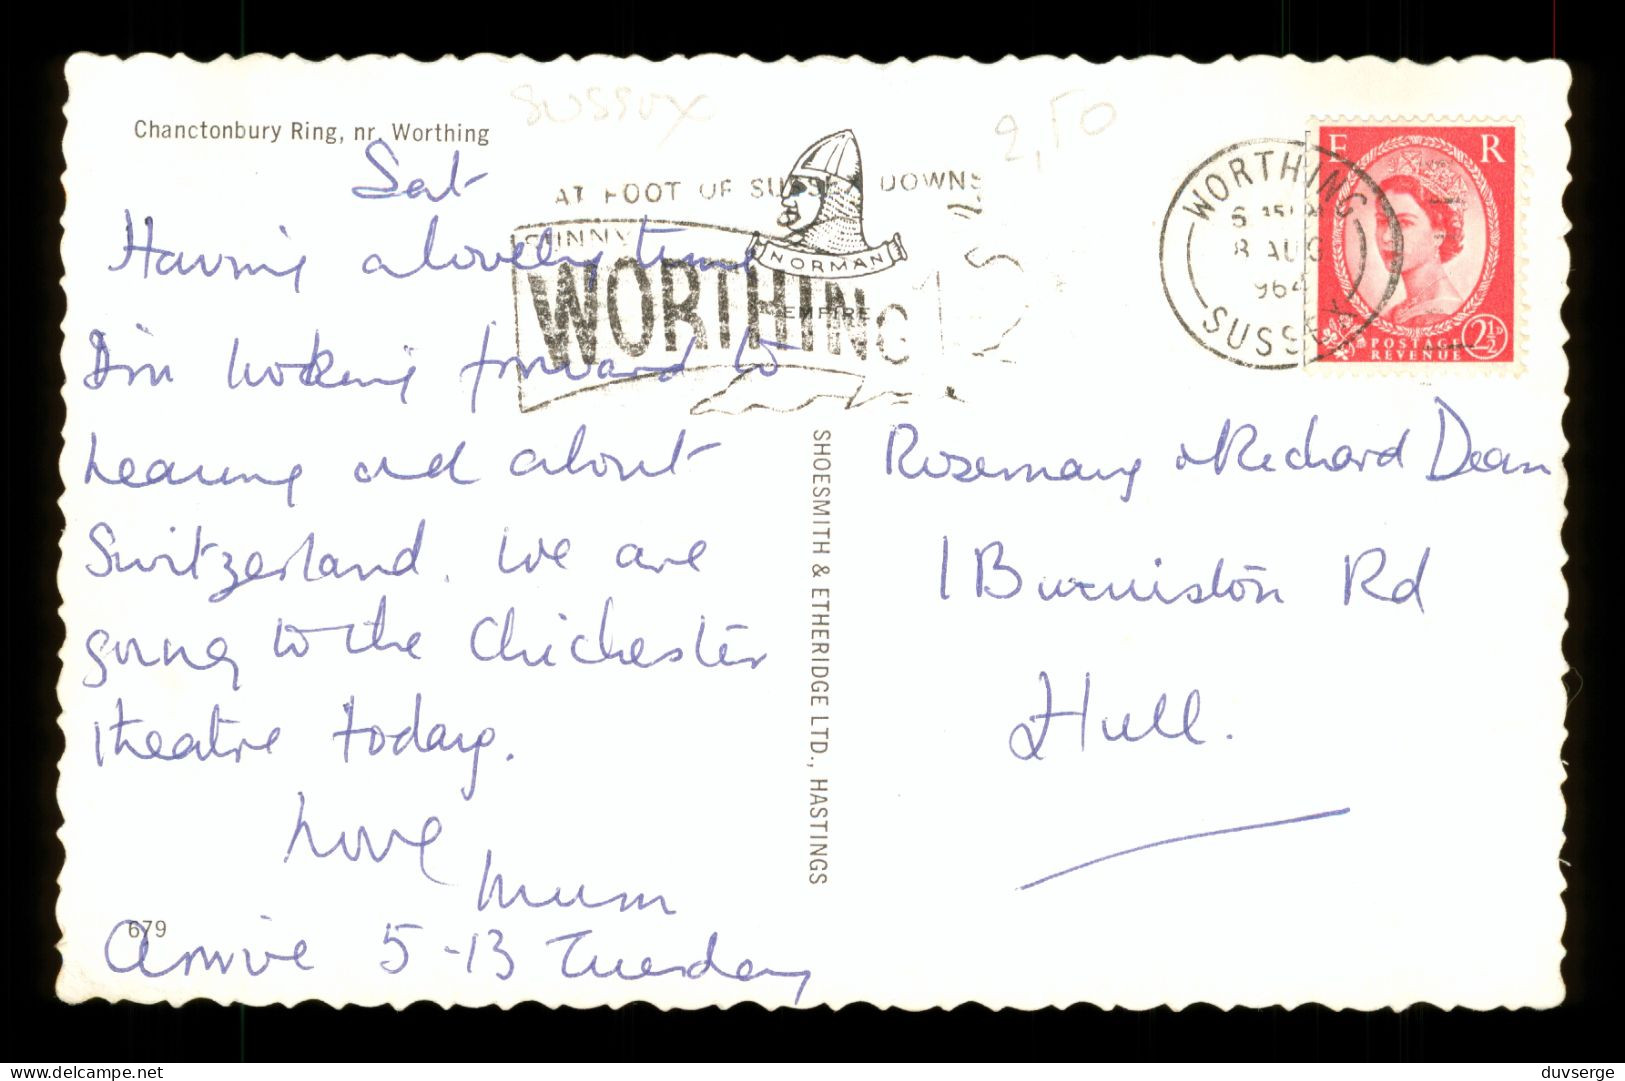 Chanctonbury Ring, nr. Worthing
SUSSUX
2,50
AT FOOT OF SUSSEX DOWNS
SUNNY
WORTHING
NORMAN
EMPIRE
WORTHING
8 AUG
1964
SUSSEX
E R
POSTAGE
REVENUE
2½D
Sat
Having a lovely time
I'm looking forward to
hearing all about
Switzerland. We are
going to the Chichester
theatre today.
Love
Mum
679
Arrive 5-13 Tuesday
SHOESMITH & ETHERIDGE LTD., HASTINGS
Rosemary & Richard Dean
1 Burniston Rd
Hull.
duvserge